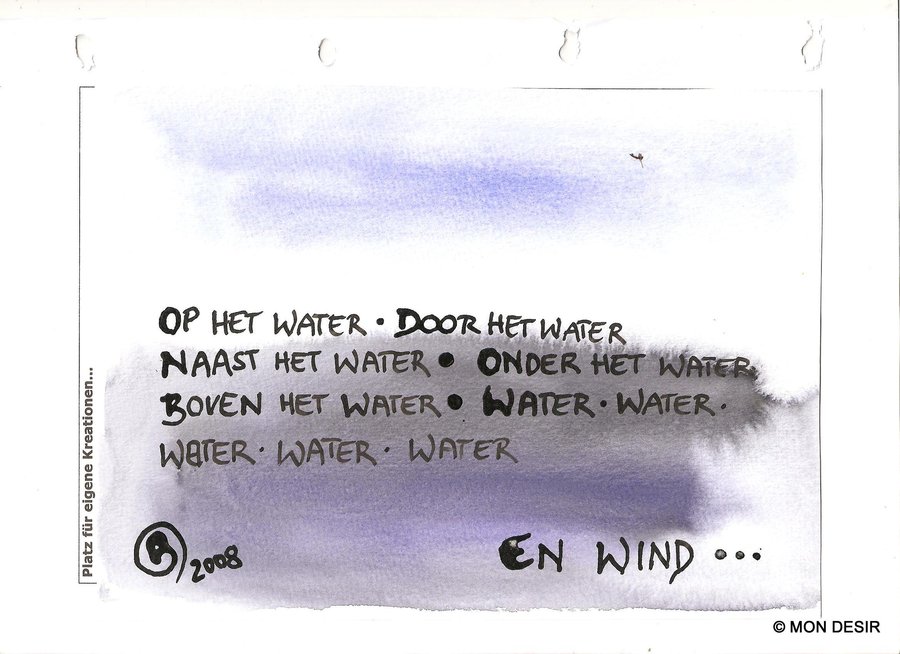 OP HET WATER • DOOR HET WATER
NAAST HET WATER • ONDER HET WATER
BOVEN HET WATER • WATER • WATER •
WATER • WATER • WATER
2008
EN WIND •••
Platz für eigene Kreationen...
© MON DESIR